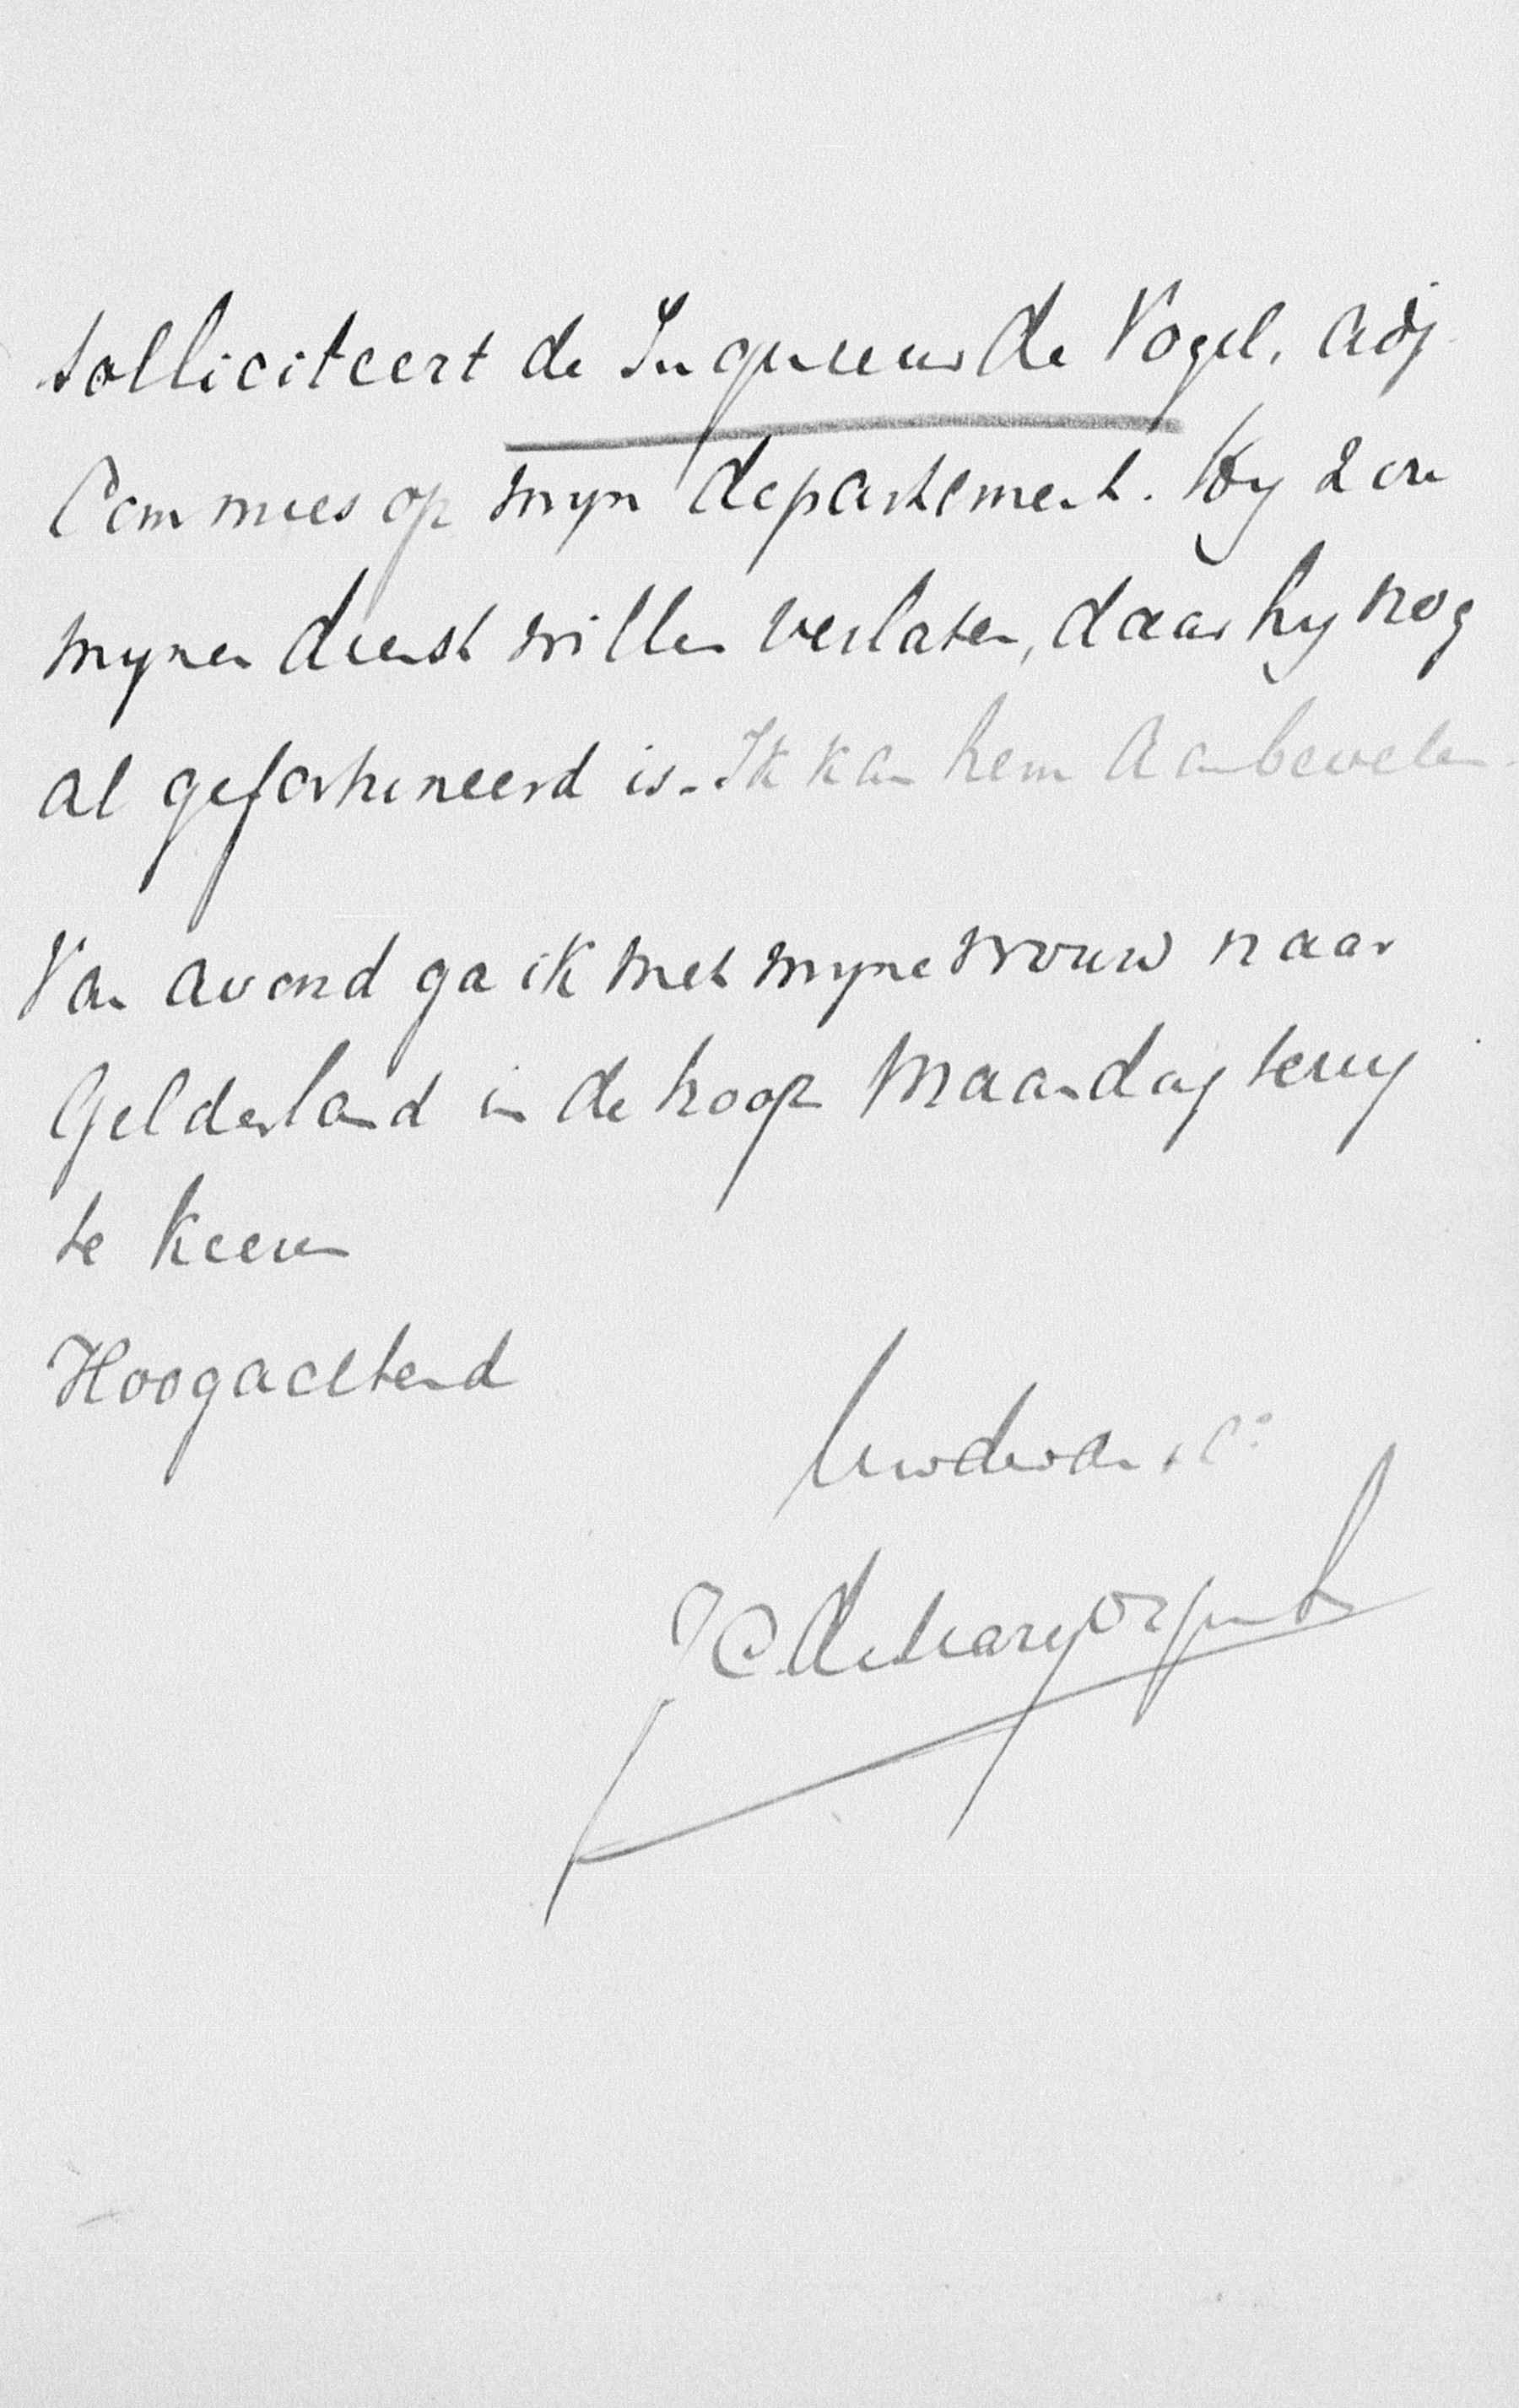 solliciteert de Ingenieur de Vogel, adj
Commies op myn departement. Hy zou
mynen dienst willen verlaten, daar hy nog
al gefortuneerd is. Ik kan hem aanbevelen.
Van avond ga ik met myne vrouw naar
Gelderland in de hoop Maandag terug
te keeren
Hoogachtend
Uwdwdn
JC de Marez Oyens